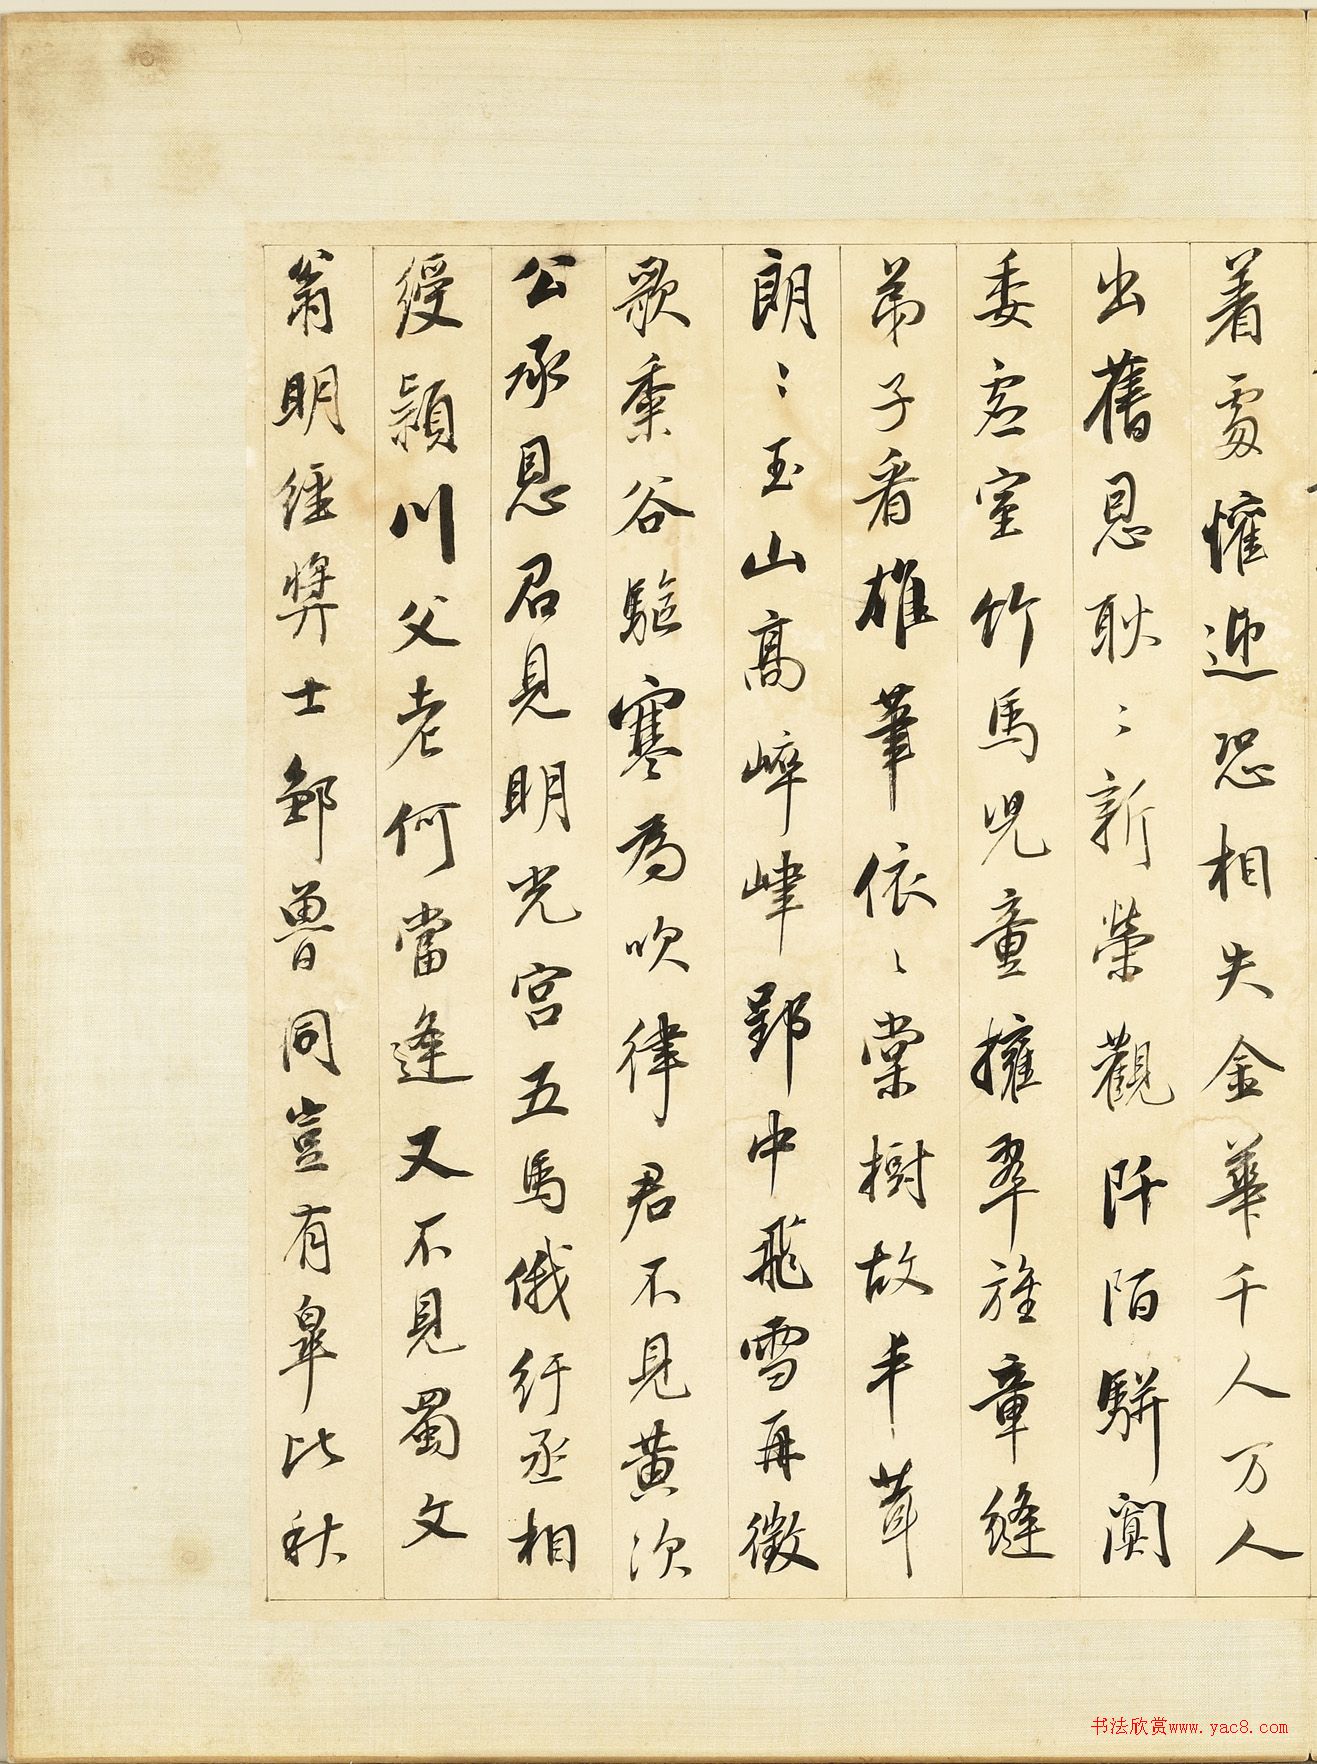 着處懽迎恐相失金華千人万人
出舊恩耿〻新榮觀阡陌駢闐
委虚室竹馬児童擁翠旌章縫
弟子看雄筆依〻棠樹故丰茸
朗〻玉山高崒嵂郢中飛雪再徵
歌黍谷驅寒為吹律君不見黄次
公承恩召見明光宫五馬俄紆丞相
綬潁川父老何當逢又不見蜀文
翁明經奬士鄒魯同豈有皐比秋
书法欣赏www.yac8.com